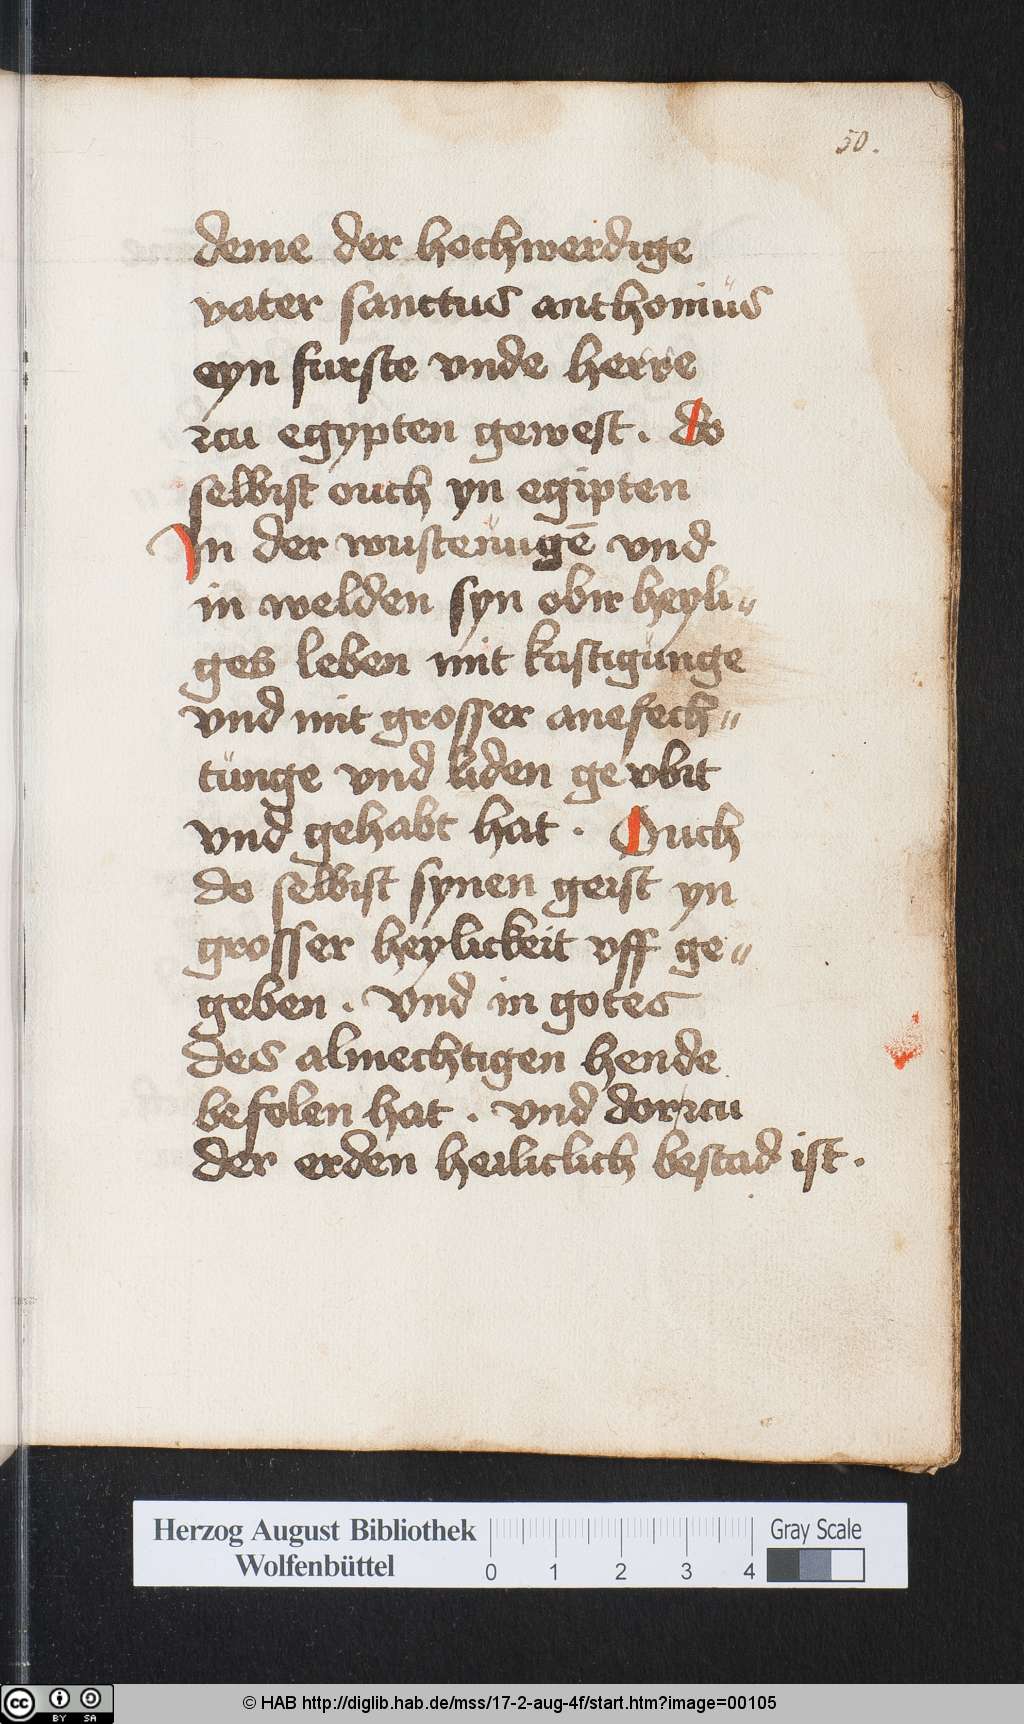 50.
deme der hochwerdige
vater sanctus anthoniüs
eyn furste vnde herre
zcu egypten gewest. do
selbist ouch yn egipten
In der wusterüngē vnd
in welden syn obir heyli„
ges leben mit kastigünge
vnd mit grosser anefech„
tünge vnd liden ge vbit
vnd gehabt hat. Ouch
do selbist synen geist yn
grosser heylickeit vff ge„
geben. vnd in gotes
des almechtigen hende
befolen hat. vnd dorzcu
der erden heiliclich bestad ist.
Herzog August Bibliothek
Wolfenbüttel
0 1 2 3 4
Gray Scale
cc BY SA
© HAB http://diglib.hab.de/mss/17-2-aug-4f/start.htm?image=00105